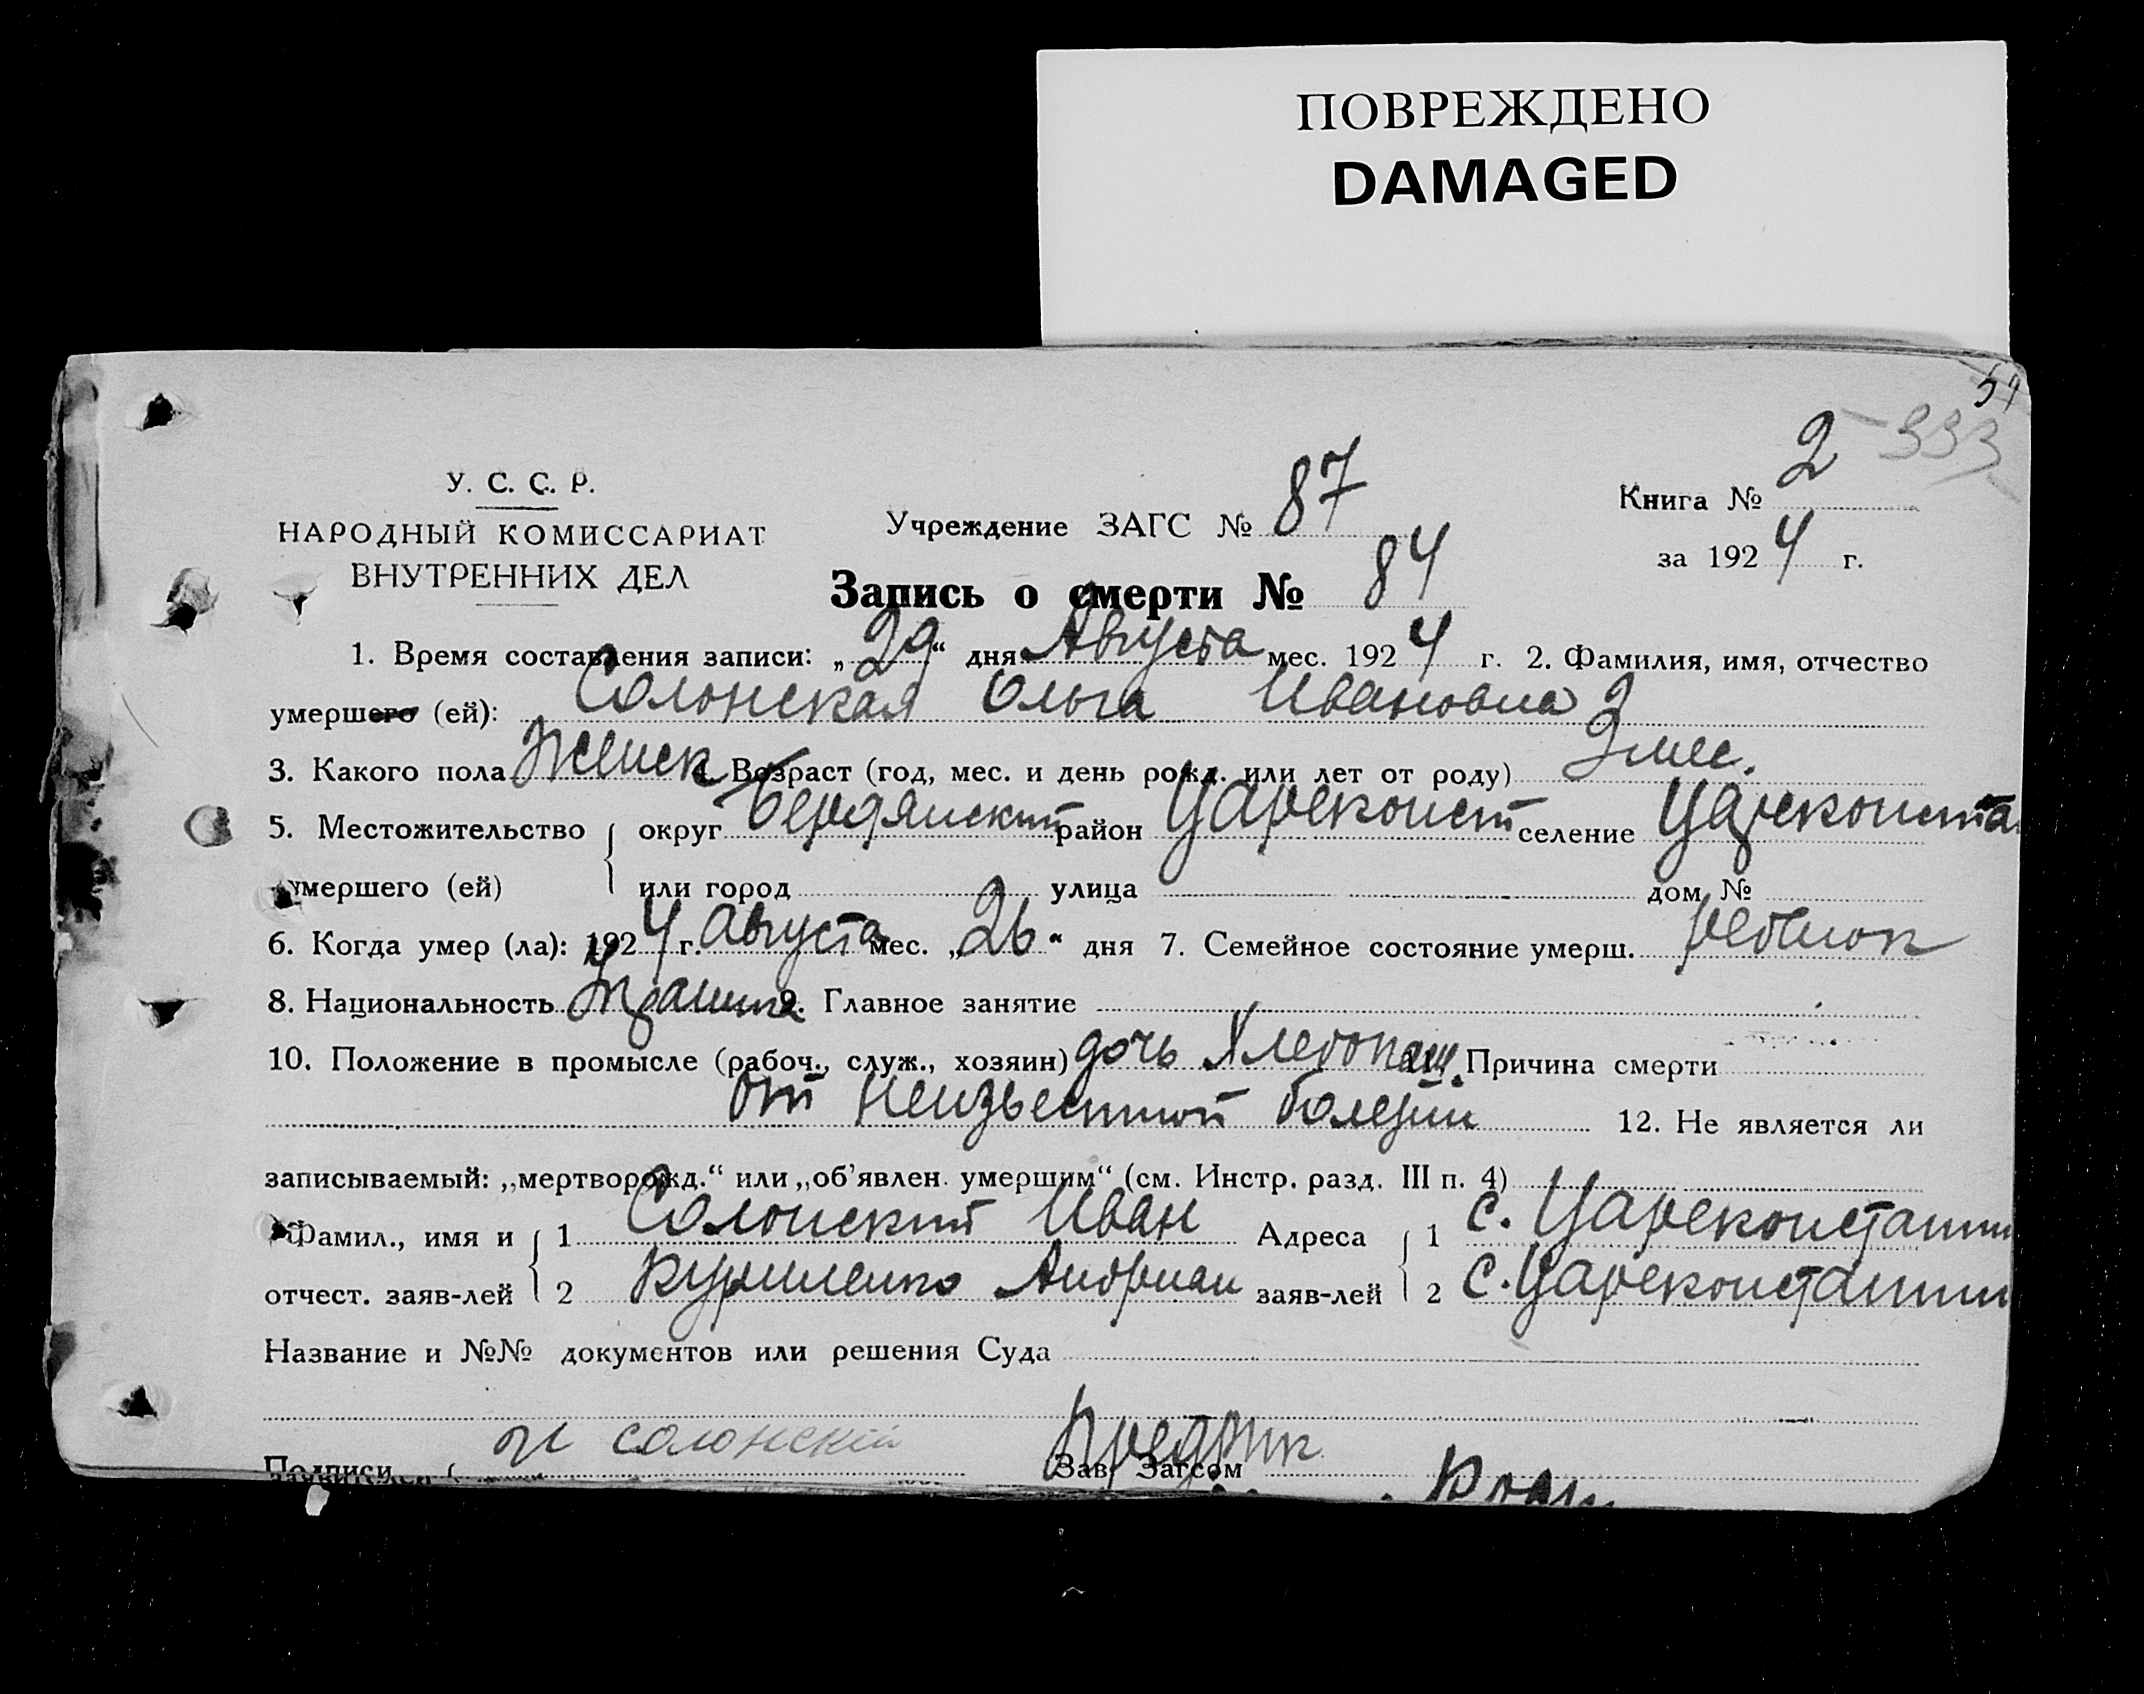 ПОВРЕЖДЕНО
DAMAGED
54
2 333
У. С. С. Р.
НАРОДНЫЙ КОМИССАРИАТ
ВНУТРЕННИХ ДЕЛ
Учреждение ЗАГС № 87
Книга № 2
за 1924 г.
Запись о смерти № 84
1. Время составления записи: „29“ дня Августа мес. 1924 г. 2. Фамилия, имя, отчество
умершего (ей): Солонская Ольга Ивановна
3. Какого пола Женск 4. Возраст (год, мес. и день рожд. или лет от роду) 2 мес.
5. Местожительство округ Бердянский район Цареконст селение Цареконста
умершего (ей) или город улица дом №
6. Когда умер (ла): 1924 г. Августа мес. „26“ дня 7. Семейное состояние умерш. ребионк
8. Национальность 9. Главное занятие
10. Положение в промысле (рабоч., служ., хозяин) дочь Хлебопаш. 11. Причина смерти
от неизвестной болезни 12. Не является ли
записываемый: „мертворожд.“ или „об'явлен умершим“ (см. Инстр. разд. III п. 4)
Фамил., имя и 1 Солонский Иван Адреса 1 с. Цареконстантин
отчест. заяв-лей 2 Куриленко Андриан заяв-лей 2 с. Цареконстантин
Название и №№ документов или решения Суда
Подписи И Солонский Зав. Загсом